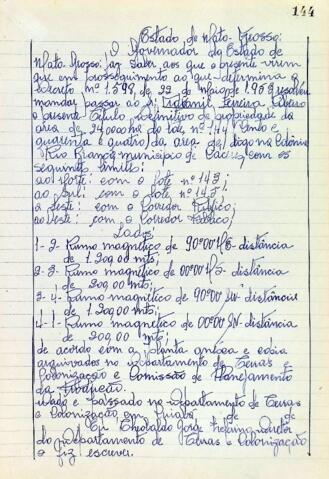 144
Estado de Mato-Grosso:
O Governador do Estado de
Mato-Grosso: faz saber aos que o presente virem
que em prosseguimento ao que determina o
decreto nº 1.598, de 22 de maio de 1.953 resolveu
mandar passar ao Sr. Ferreira Ribeiro
o presente Titulo definitivo de propriedade da
area de 24,0000 ha do lote nº 144 (cento e
quarenta e quatro) da area, digo na Colonia
Rio Branco, municipio de Caceres com os
seguintes limites:
ao Norte: com o lote nº 143;
ao Sul: com o lote nº 145;
a Leste: com o Corredor Publico;
a Oeste: com o Corredor Publico;
Lados:
1-2-Rumo magnético de 90º00' distância
de 1.200,00 mts;
2-3-Rumo magnético de 00º00' distância
de 200,00 mts;
3-4-Rumo magnético de 90º00' distância
de 1.200,00 mts;
4-1-Rumo magnético de 00º00' SN-distância
de 200,00 mts;
de acordo com a planta anéxa e cópia
arquivados no Departamento de Terras e
Colonização e Comissão de Planejamento
da Produção.
dado e passado no Departamento de Terras
e Colonização em Cuiabá, de de
Eu, Jorge diretor
do Departamento de Terras e Colonização
o fiz escrever.